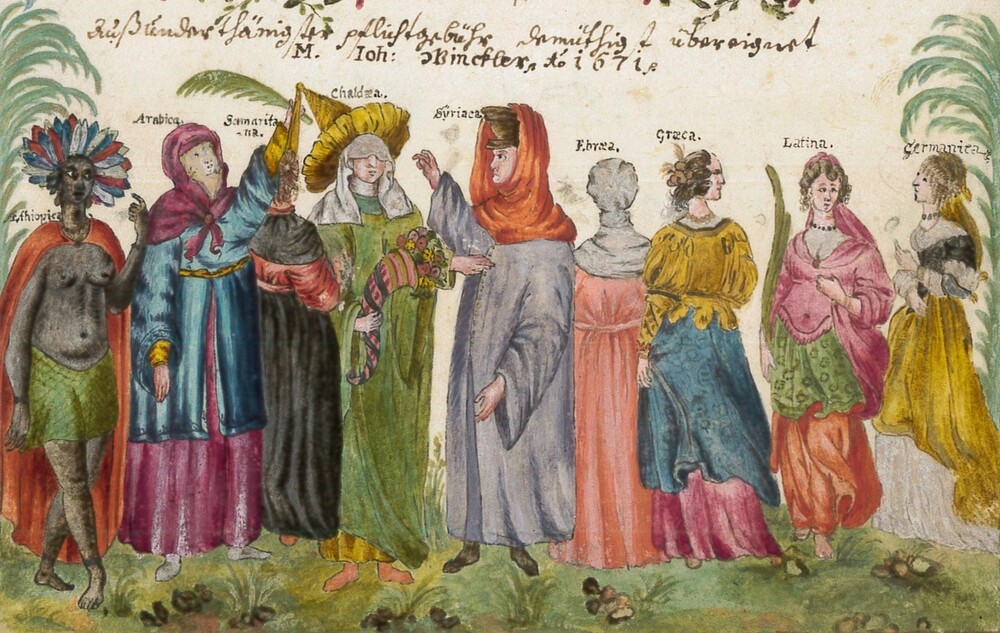 außunderthänigster pflichtgebühr demüthigst übereignet
M. Joh: Winckler, Ao 1671.
Æthiopica
Arabica.
Samarita-
na.
Chaldæa.
Syriaca.
Ebræa.
Græca.
Latina.
Germanica.